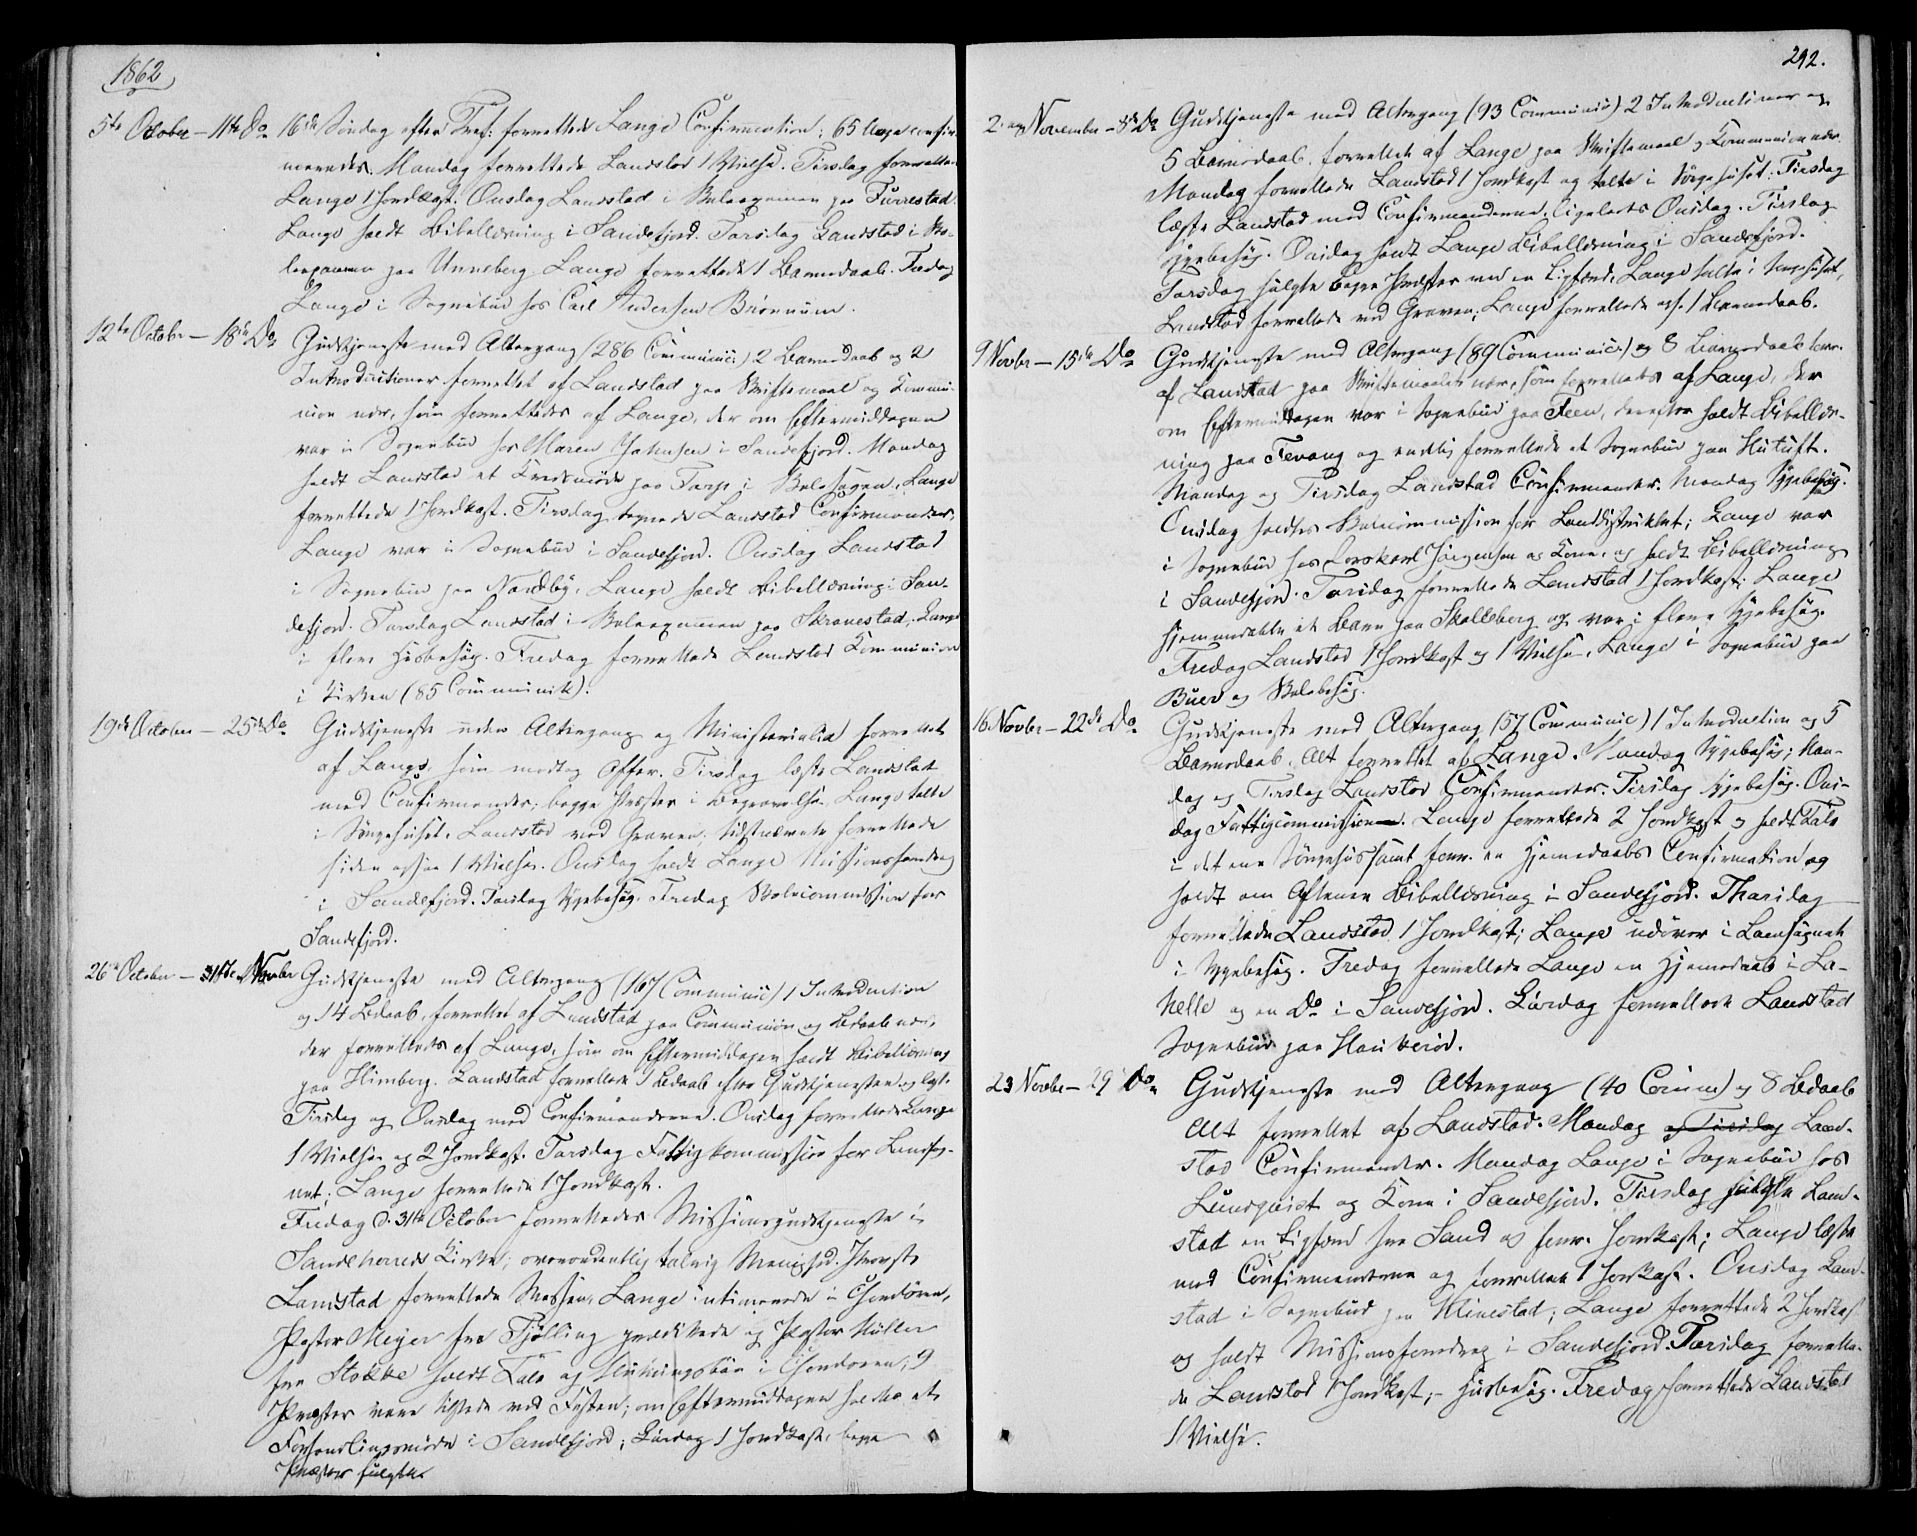 1862
5te October – 11te Do 16de Söndag efter Tref: forrettede Lange Confirmation; 65 Unge confir-
meredes. Mandag forrettede Landstad 1 Vielse. Tirsdag forrettede
Lange 1 Jordkast. Onsdag Landstad i Skoleexamen paa Furrestad.
Lange holdt Bibellæsning i Sandefjord. Torsdag Landstad i Sko-
leexamen paa Unneberg. Lange forrettede 1 Barnedaab. Fredag
Lange i Sognebud hos Carl Andersen Brönnum.
12te October – 18de Do Gudstjeneste med Altergang (286 Communic:) 2 Barnedaab og 2
Introductioner forrettet af Landstad paa Skriftemaal og Kommu-
nion nær, som forrettedes af Lange, der om Eftermiddagen
var i Sognebud hos Maren Johnsen i Sandefjord. Mandag
holdt Landstad et Kredsmöde paa Torp i Skolesagen. Lange
forrettede 1 Jordkast. Tirsdag Landstad Confirmander,
Lange var i Sognebud i Sandefjord. Onsdag Landstad
i Sognebud paa Nordby, Lange holdt Bibellæsning i San-
defjord. Torsdag Landstad i Skoleexamen paa Skravestad, Lange
i flere Husbesög. Fredag forrettede Landstad Kommunion
i Kirken (85 Communik).
19de October – 25de Do Gudstjeneste uden Altergang og Ministerialia forrettet
af Lange, som modtog Offer. Tirsdag læste Landstad
med Confirmander; begge Præster i Begravelse. Lange talte
i Sörgehuset, Landstad ved Graven; sidstnævnte forrettede
siden ogsaa 1 Vielse. Onsdag holdt Lange Missionsforedrag
i Sandefjord. Torsdag Sygebesög. Fredag Skolecommission for
Sandefjord.
26de October – Novber Gudstjeneste med Altergang (167 Communic) 1 Introduction
og 14 Bdaab, forrettet af Landstad paa Communion og Bdaab nær,
der forrettedes af Lange, som om Eftermiddagen holdt Bibellæsning
paa Himberg. Landstad forrettede 1 Bdaab efter Gudstjenesten og læste
Tirsdag og Onsdag med Confirmanderne. Onsdag forrettede Lange
1 Vielse og 2 Jordkast. Torsdag Fattigkommission for Landsog-
net; Lange forrettede 1 Jordkast.
Fredag d. 31te October forrettedes Missionsgudstjeneste i
Sandeherreds Kirke; overordentlig talrig Menighed. Provst
Landstad forrettede Messen, Lange intimerede i Chordören,
Pastor Meyer fra Tjölling prædikede og Pastor Müller
fra Stokke holdt Tale og Slutningsbön i Chordören; 9
Præster vare tilstede ved Festen; om Eftermiddagen holdtes et
Forhandlingsmöde i Sandefjord; Lördag 1 Jordkast, begge
Præster fulgte.
292.
2. November – 8de Do Gudstjeneste med Altergang (93 Communic) 2 Introductioner og
5 Barnedaab. forrettet af Lange paa Skriftemaal og Kommunion nær.
Mandag forrettede Landstad 1 Jordkast og talte i Sörgehuset. Tirsdag
læste Landstad med Confirmanderne, ligeledes Onsdag. Tirsdag
Sygebesög. Onsdag holdt Lange Bibellæsning i Sandefjord.
Torsdag fulgte begge Præster med en Ligfærd, Lange talte i Sörgehuset,
Landstad forrettede ved Graven; Lange forrettede ogs. 1 Barnedaab.
9 Novbr – 15de Do Gudstjeneste med Altergang (89 Communic:) og 8 Barnedaab forr.
af Landstad paa Skriftemaalet nær, som forrettedes af Lange, der
om Eftermiddagen var i Sognebud paa Feen, derefter holdt Bibellæs-
ning paa Fevang og endelig forrettede et Sognebud paa Hutuft.
Mandag og Tirsdag Landstad Confirmander. Mandag Sygebesög.
Onsdag holdtes Skolecommission for Landdistriktet; Lange var
i Sognebud hos Jörgensen og Kone, og holdt Bibellæsning
i Sandefjord. Torsdag forrettede Landstad 1 Jordkast. Lange
hjemmedöbte et Barn paa Skolleberg og var i flere Sygebesög.
Fredag Landstad 1 Jordkast og 1 Vielse, Lange i Sognebud paa
Buer og Skolebesög.
16 Novbr – 22de Do Gudstjeneste med Altergang (57 Communic) 1 Introduction og 5
Barnedaab. Alt forrettet af Lange. Mandag Sygebesög; Man-
dag og Tirsdag Landstad Confirmander. Tirsdag Sygebesög. Ons-
dag Fattigcommission. Lange forrettede 2 Jordkast og holdt Tale
i det ene Sörgehus samt forr. en Hjemedaabs Confirmation og
holdt om Aftenen Bibellæsning i Sandefjord. Thorsdag
forrettede Landstad 1 Jordkast; Lange udover i Landsognet
i Sygebesög. Fredag forrettede Lange en Hjemedaab i La-
helle og en Do i Sandefjord. Lördag forrettede Landstad
Sognebud paa Haukeröd.
23 Novbr – 29 Do Gudstjeneste med Altergang (40 Comm) og 8 Bdaab
Alt forrettet af Landstad. Mandag og Tirsdag Land-
stad Confirmander. Mandag Lange i Sognebud hos
Lundqvist og Kone i Sandefjord. Tirsdag fulgte Land-
stad en Ligfærd fra Sand og forr. Jordkast; Lange læste
med Confirmanderne og forrettede 1 Jordkast. Onsdag Land-
stad i Sognebud paa Klinestad; Lange forrettede 2 Jordkast
og holdt Missionsforedrag i Sandefjord. Torsdag forrette-
de Landstad 1 Jordkast; – Husbesög. Fredag forrettede Landstad
1 Vielse.